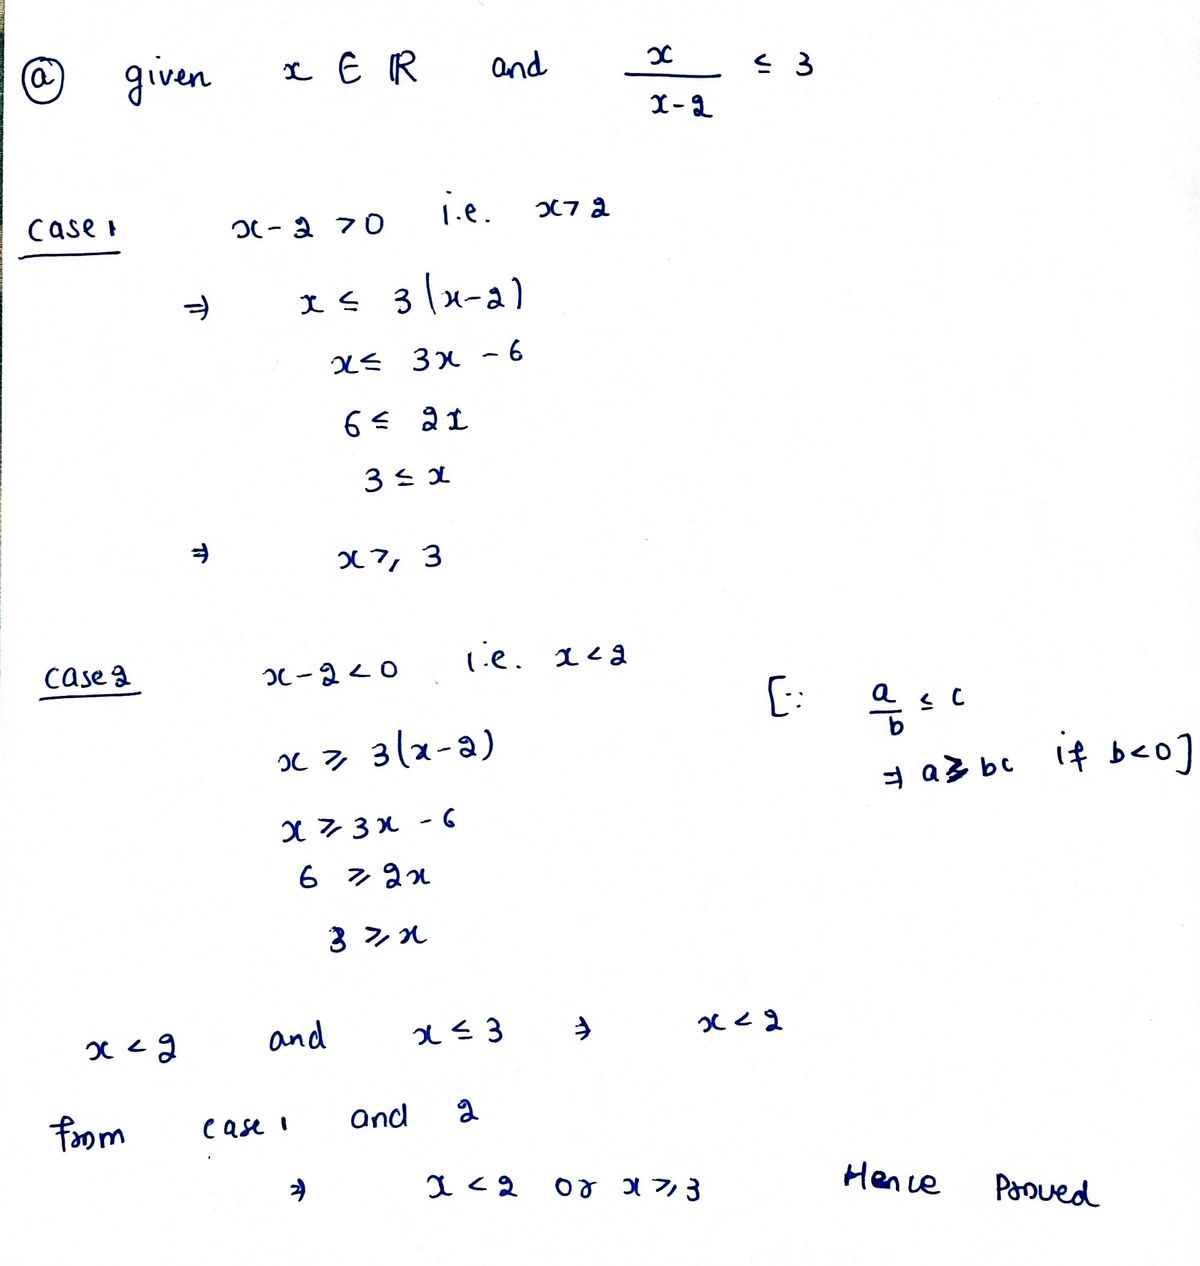 (a) given x ∈ ℝ and x/(x-2) ≤ 3
case 1 x-2 >0 i.e. x>2
⇒ x ≤ 3(x-2)
x ≤ 3x - 6
6 ≤ 2x
3 ≤ x
⇒ x ≥ 3
case 2 x-2 < 0 i.e. x < 2
[∵ a/b ≤ c
x ≥ 3(x-2)
⇒ a ≥ bc if b<0]
x ≥ 3x - 6
6 ≥ 2x
3 ≥ x
x < 2 and x ≤ 3 ⇒ x < 2
from case 1 and 2
⇒ x < 2 or x ≥ 3 Hence Proved